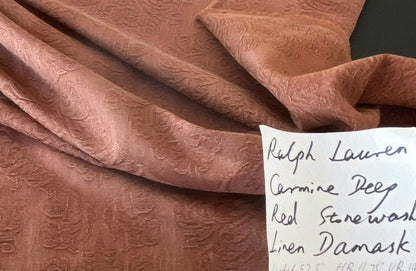 Ralph Lauren
Carmine Deep
Red Stonewash
Linen Damask